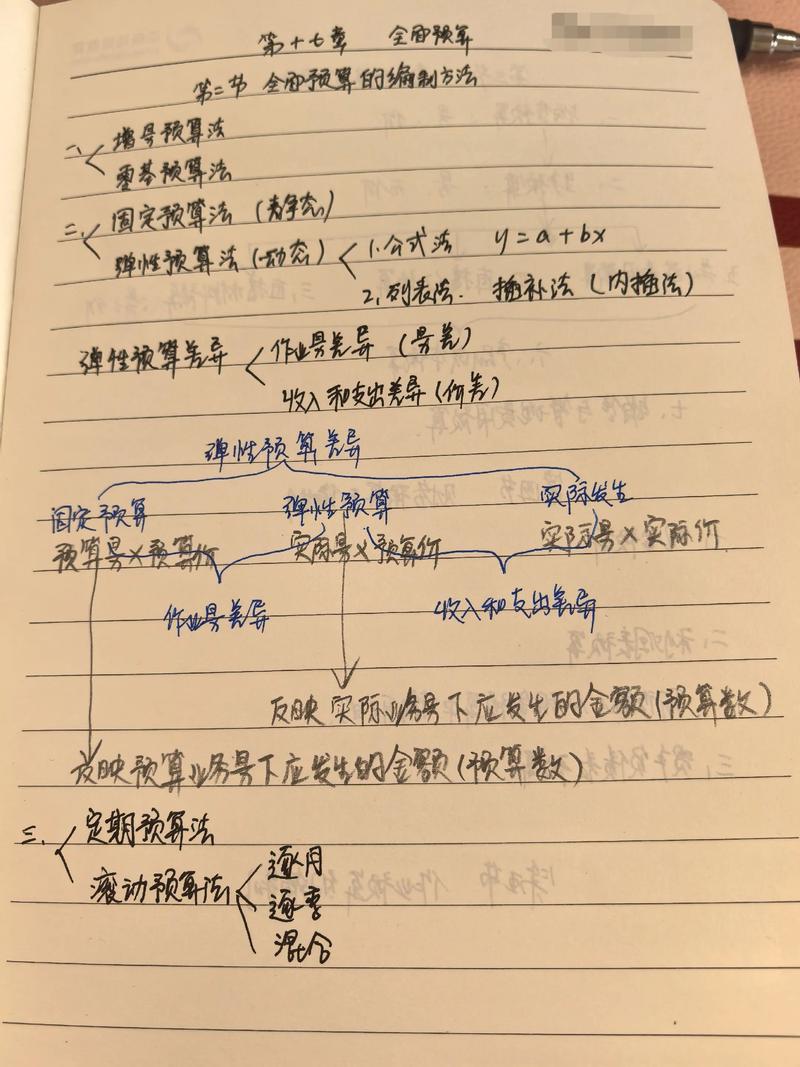 第十七章 全面预算
第二节 全面预算的编制方法
一、增量预算法
零基预算法
二、固定预算法 (静态)
弹性预算法 (动态) 1.公式法 y=a+bx
2.列表法. 插补法 (内插法)
弹性预算差异 作业量差异 (量差)
收入和支出差异 (价差)
弹性预算差异
固定预算 弹性预算 实际发生
预算量×预算价 实际量×预算价 实际量×实际价
作业量差异 收入和支出差异
反映实际业务量下应发生的金额(预算数)
反映预算业务量下应发生的金额(预算数)
三、定期预算法
滚动预算法 逐月
逐季
混合